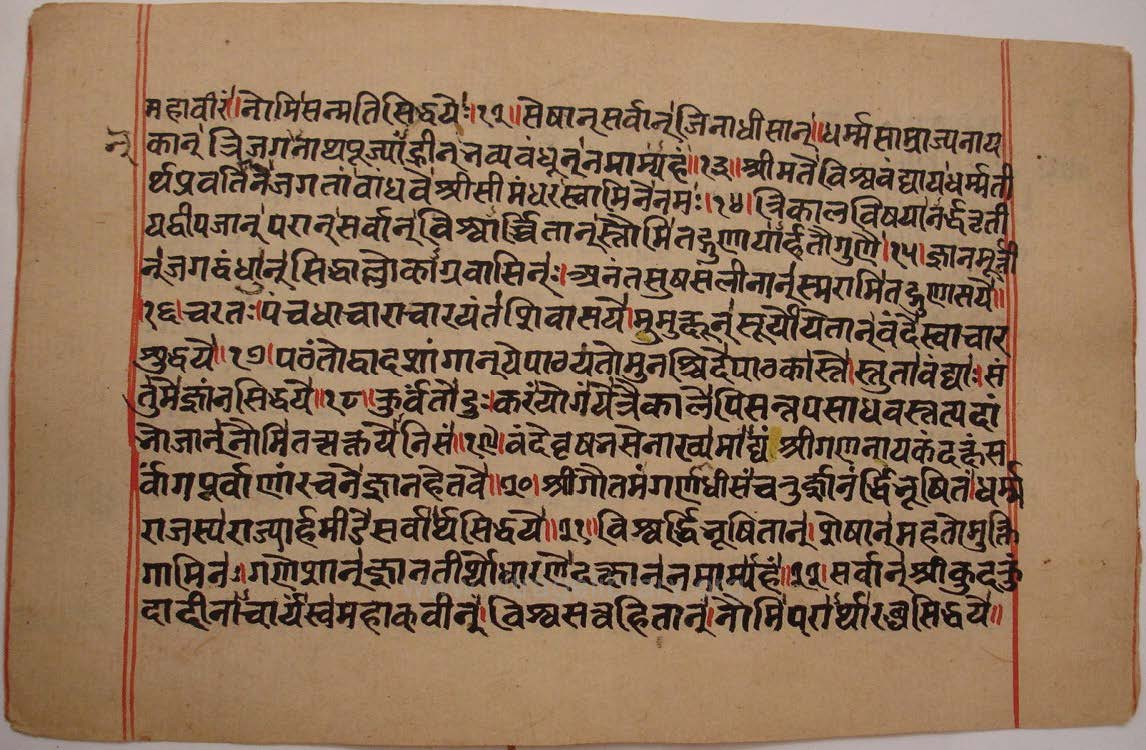 महावीरं।नौमिसन्मतिसिद्धयेः।१२॥सेषान्सर्वान्जिनाधीसान्॥धर्म्मसाम्राज्यनाय
कान्त्रिजगनाथपूज्यांह्रीन्नव्यवंधून्नमाम्यहं॥१३॥श्रीमतेविश्ववंद्यायधर्म्मती
र्थप्रवर्तिनेजगतांवांधवेश्रीसीमंधरस्वामिनेनमः।१४।त्रिकालविषयानर्द्धतृती
यद्वीपजान्परान्सर्वान्विश्वार्च्चितान्स्तौमितद्गुणायार्हतोगुणैः।१५।ज्ञानमूर्ती
न्जगद्वंधून्सिद्धाल्लोकाग्रवासिनः।अनंतसुषसंलीनान्स्मरामितद्गुणासये॥
।१६।चरतःपंचधाचाराचारयंतंशिवासयै।मुमुक्षून्सूर्यौयैतान्वंदेस्वाचार
शुद्धये॥१७।पठंतोद्वादशांगान्येपाठयंतोमुनश्चिदेपाठकास्तेस्तुतावंद्याःसं
तुमेज्ञांनसिद्धये॥१८।कुर्वंतौदुःकरंयोगंयेत्रैकालेपिसत्तपसाधवस्तत्पदां
नोजान्नौमितच्छक्तयेनिसं॥१९।वंदेवृषनसेनाख्यमाद्यंश्रीगणनायकंदक्षंस
र्वांगपूर्वाणांरचनेज्ञानहेतवे॥२०।श्रीगौतमंगणाधीसंचतुर्ज्ञानंर्द्धिनूषितं।धर्म्म
राजस्यराज्यार्हमीडेसर्वार्थसिद्धये॥२१॥विश्वर्द्धिनूषितान्।शेषान्महतोमुक्ति
गामिनः।गणेशान्ज्ञानतीर्थोधारणेदक्षान्नमाम्यहं॥२२।सर्वान्श्रीकुदकुं
दादीनाचार्यस्वमहाकवीन्।विश्वसत्वहितान्।नौमिपरार्थारब्धसिद्धये॥